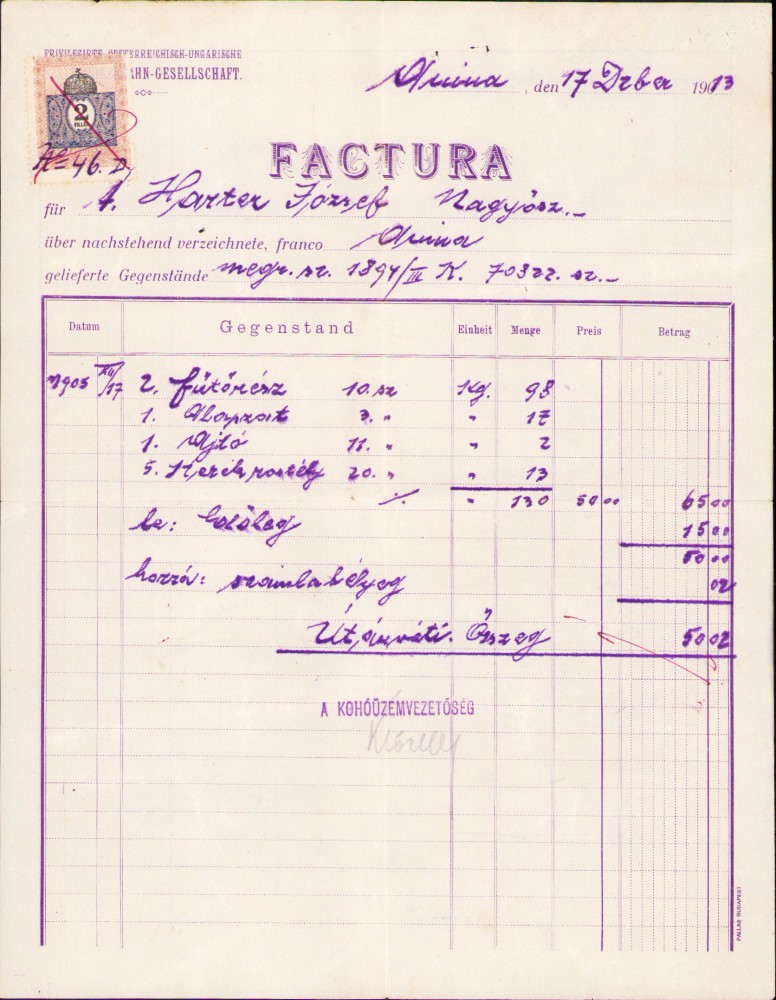 PRIVILEGIRTE OESTERREICHISCH-UNGARISCHE
AHN-GESELLSCHAFT.
2
FILLÉR
46. D
Anina, den 17 Dzber 1903
FACTURA
für A. Harter József Nagyősz.
über nachstehend verzeichnete, franco Anina
gelieferte Gegenstände megr. sz. 1894/III K. 70322. sz.
Datum Gegenstand Einheit Menge Preis Betrag
1903 XII/17 2. fűtőrész 10. sz Kg. 98
1. Alapzat 3. " " 17
1. Ajtó 11. " " 2
5. Kerék rostély 20. " " 13
" 130 50 00 65 00
le: 15 00
50 00
hozzá: számlabélyeg 02
Utánvéti. Összeg 50 02
A KOHÓÜZEMVEZETŐSÉG
PALLAS BUDAPEST